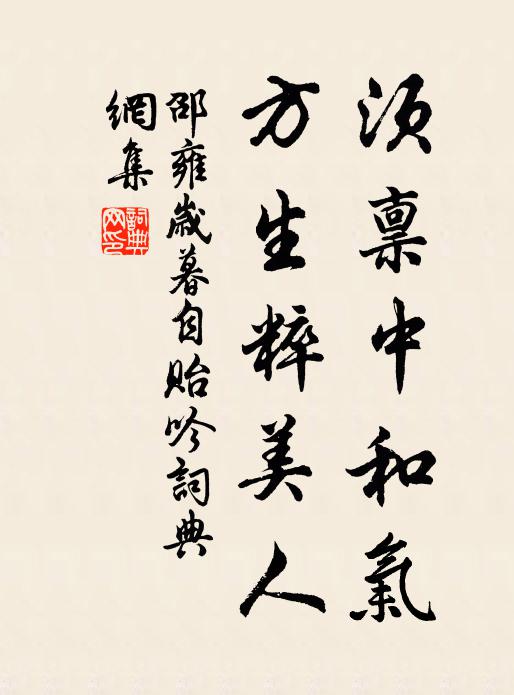 須稟中和氣
方生粹美人
邵雍歲暮自貽吟詞典
網集
詞典
网印